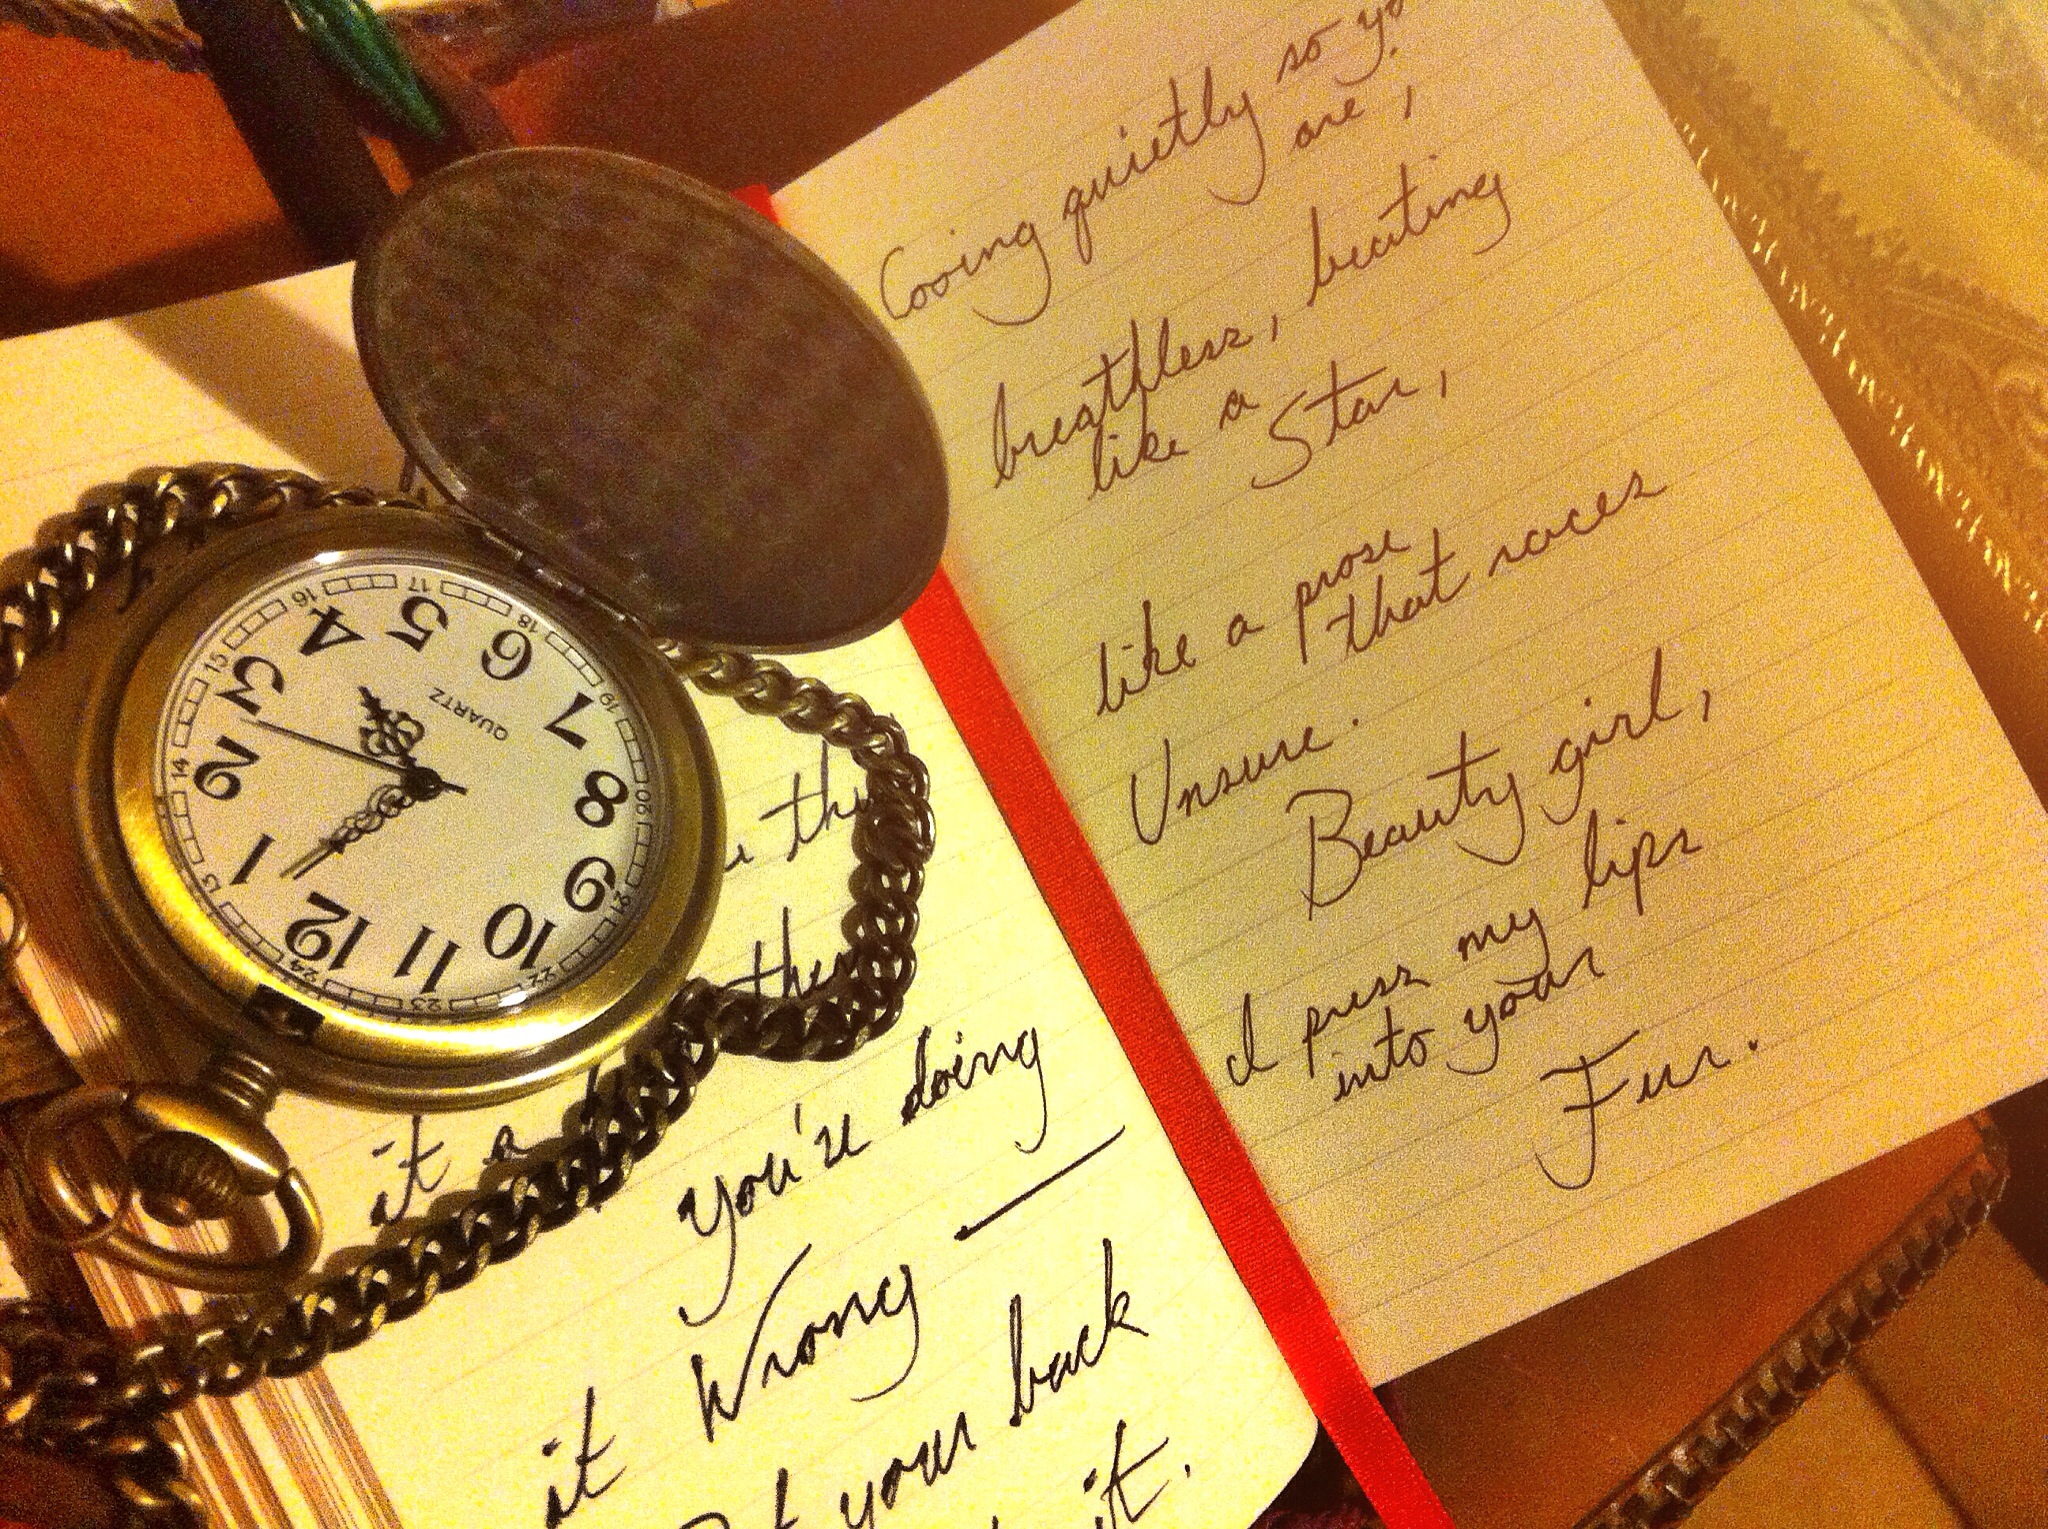 Cooing quietly so
are,
breathless, beating
like a
Star,
like a prose
that races
Unsure.
Beauty girl,
I press my lips
into your
Fur.
then
it a
you're doing
it Wrong —
your back
it.
QUARTZ
1
2
3
4
5
6
7
8
9
10
11
12
13
14
15
16
17
18
19
20
21
22
23
24